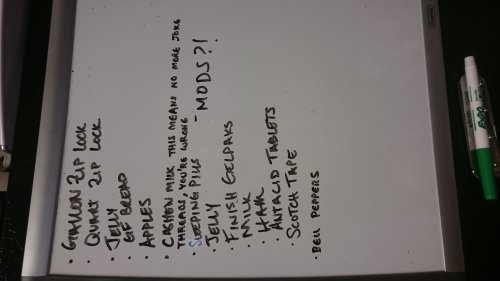 • GALLON ZIP LOCK
• QUART ZIP LOCK
• JELLY
• GF BREAD
• APPLES
• CASHEW MILK THIS MEANS NO MORE JOKE
THREADS, YOU'RE WRONG
• SLEEPING PILLS - MODS?!
• JELLY
• FINISH GELPAKS
• MILK
• HAM
• ANTACID TABLETS
• SCOTCH TAPE
• BELL PEPPERS
EXPO